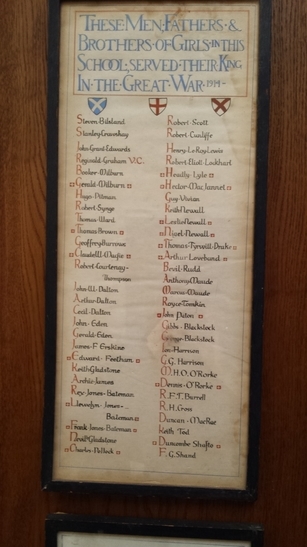 THESE MEN, FATHERS &
BROTHERS OF GIRLS IN THIS
SCHOOL, SERVED THEIR KING
IN THE GREAT WAR 1914-
Steven Bilsland
Stanley Greveshay
John Grant Edwards
Reginald Graham V.C.
Bosher Milburn
Gerald Milburn
Hugo Pitman
Robert Synge
Thomas Ward
Thomas Brown
Geoffrey Burrows
Claude W. Maffie
Robert Courtenay-
Thompson
John W. Dalton
Arthur Dalton
Cecil Dalton
John Eden
Gerald Eden
James F Erskine
Edward Feetham
Keith Gladstone
Archie James
Rex Jones-Bateman
Llewelyn Jones-
Bateman
Frank Jones-Bateman
Gladstone
Charles Pollock
Robert Scott
Robert Cunliffe
Henry LeRoy Lewis
Robert Eliott Lockhart
Lyle
Hector Mac Jannet
Guy Vivian
Keith Newall
Leslie Newall
Nigel Newall
Thomas Tyrwitt Drake
Arthur
Basil Rudd
Anthony Maude
Maurice Maude
Royce Tomkin
John Paton
Gibbs Blackstock
George Blackstock
Ian Harrison
G.G. Harrison
M.H.O. O'Rorke
Dennis O'Rorke
R.F.T. Burrell
R.H. Cross
Duncan MacRae
Keith Tod
Duncombe Shafto
F.G. Shand